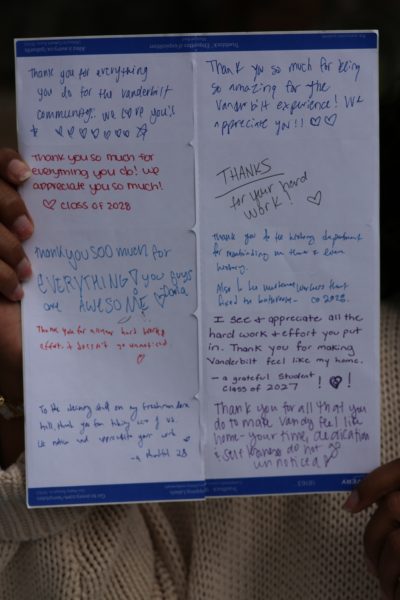 Thank you for everything
you do for the Vanderbilt
community! we love you!!
Thank you so much for
everything you do! we
appreciate you so much!
class of 2028
thank you SOO much for
EVERYTHING! you guys
are AWESOME
Thank you for all your hard work &
effort. it doesn't go unnoticed
To the cleaning staff on my freshman dorm
hall, thank you for taking care of us.
We notice and appreciate your work
28
Thank you so much for being
so amazing for the
Vanderbilt experience! We
appreciate you!!
THANKS
for your hard
work!
Thank you to the
department
for maintaining
2028
I see & appreciate all the
hard work & effort you put
in. Thank you for making
Vanderbilt feel like my home.
- a grateful student
class of 2027
Thank you for all that you
do to make Vandy feel like
home - your time, dedication
& selflessness do not go
unnoticed
AVERY